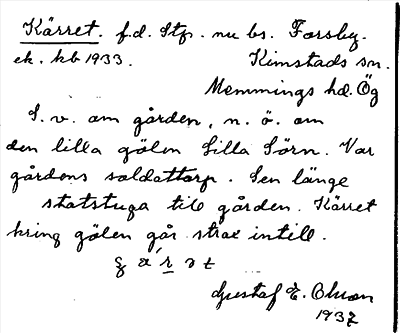 Kärret. f.d. Stp. nu bs. Forsby.
ek. kb 1933. Kimstads sn.
Memmings hd. Ög
S.v. om gården, n.ö. om
den lilla gölen Lilla Sörn. Var
gårdens soldattorp. Sen länge
statstuga till gården. Kärret
kring gölen går strax intill.
Gustaf E. Olsson
1937